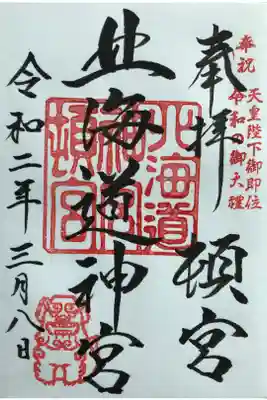 奉祝 天皇陛下御即位
令和の御大禮
奉拝 頓宮
北海道神宮
北海道
神宮
頓宮
令和二年三月八日